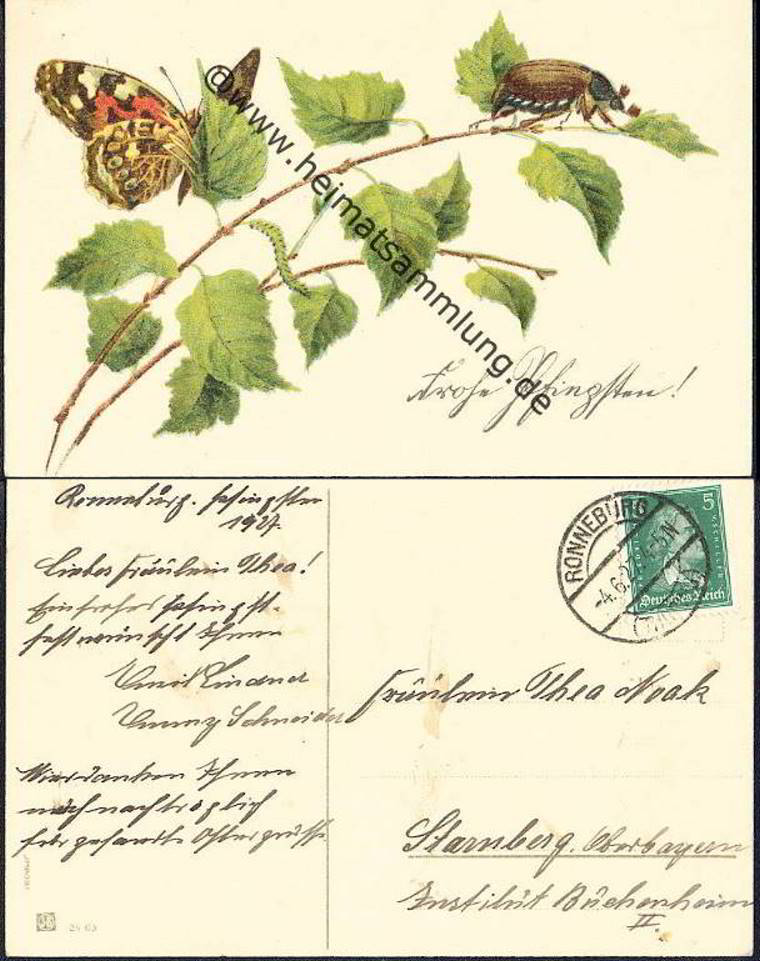 @www.heimatsammlung.de
Frohe Pfingsten!
Ronneburg. Pfingsten
1927.
Liebes Fräulein Thea!
Ein frohes Pfingst-
fest wünscht Ihnen
Emil Lindner
Schneider
Wir danken Ihnen
noch nachträglich
für gesandte Ostergrüße
RONNEBURG
-4.6.2
-5N
(THÜ
5
Deutsches Reich
Fräulein Thea Noak
Starnberg. Oberbayern
Institut Buchenheim
II.